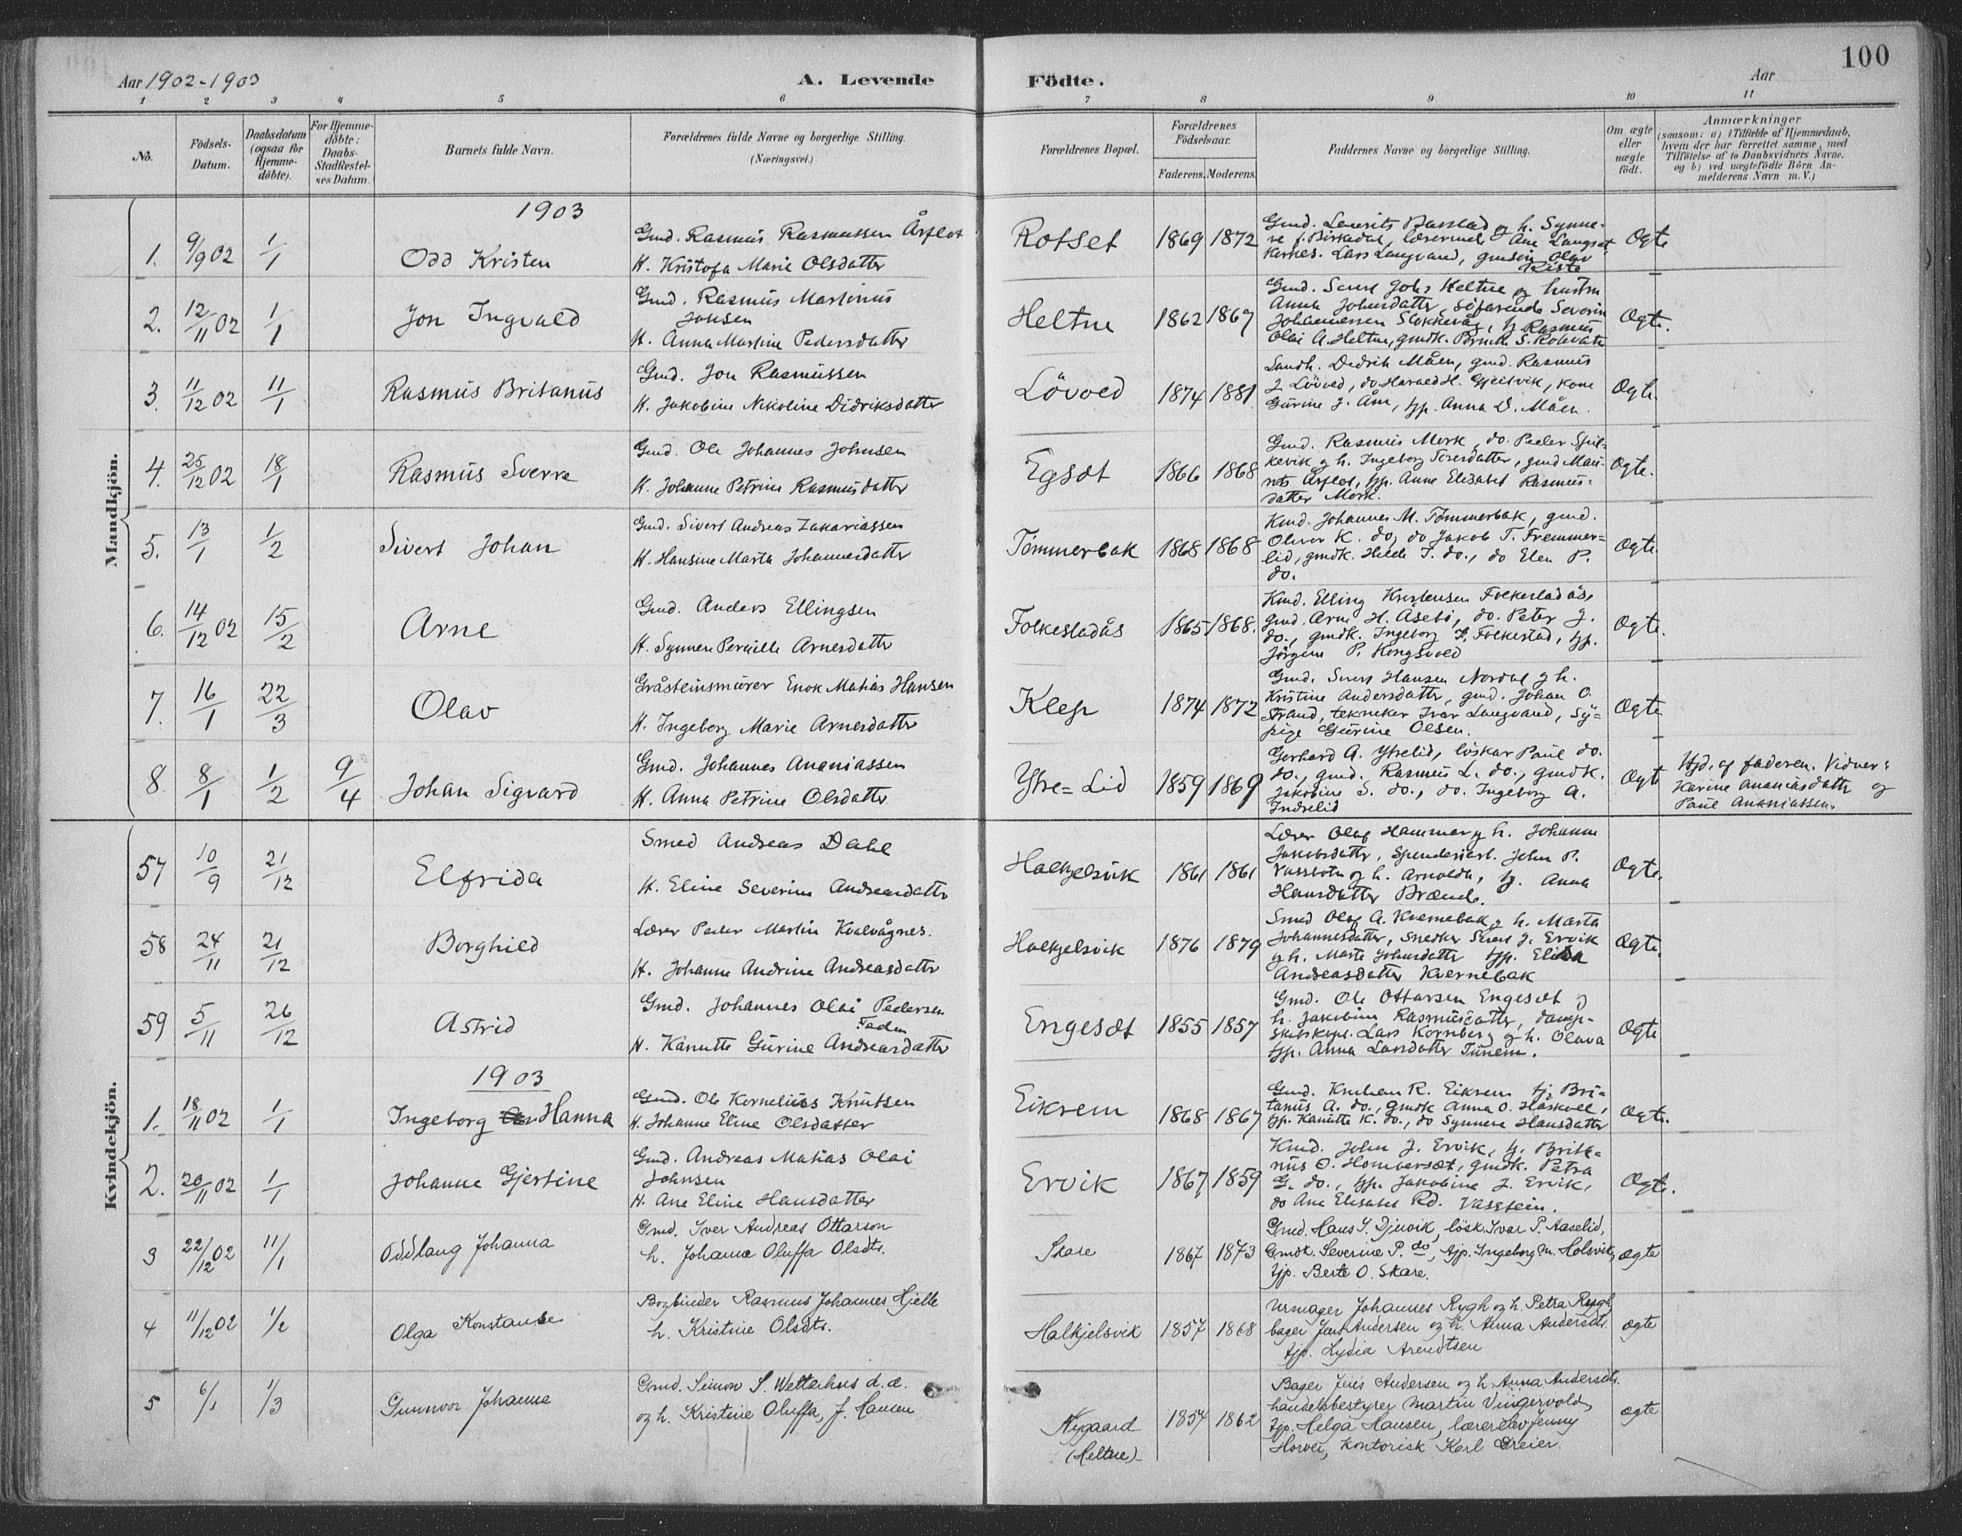 100
Aar 1902-1903
A. Levende Födte.
Aar
1 2 3 4 5 6 7 8 9 10 11
No.
Födsels-Datum.
Daabsdatum (ogsaa for Hjemmedöbte).
For Hjemmedöbte: Daabs-Stadfæstelses Datum.
Barnets fulde Navn.
Forældrenes fulde Navne og borgerlige Stilling. (Næringsvei.)
Forældrenes Bopæl.
Forældrenes Födselsaar.
Faderens. Moderens.
Faddernes Navne og borgerlige Stilling.
Om ægte eller uægte födt.
Anmærkninger
(saasom: a) i Tilfælde af Hjemmedaab, hvem der har forrettet samme, med Tilföielse af to Daabsvidners Navne, og b) ved uægtefödte Börn Anmelderens Navn m. V.)
Mandkjön.
1903
1. 9/9 02 1/1 Odd Kristen
Gmd. Rasmus Rasmussen Årflot
H. Kristofa Marie Olsdatter
Rotset 1869 1872
Ægte
2. 12/11 02 1/1 Jon Ingvald
Gmd. Rasmus Martinus
Jonsen
H. Anna Martine Pedersdatter
Heltne 1862 1867
Anna Johnsdatter, söfarende Severin
Ægte.
3. 11/12 02 11/1 Rasmus Britanus
Gmd. Jon Rasmussen
H. Jakobine Nikoline Didriksdatter
Lövoed 1874 1881
Landh. Didrik Måen, gmd. Rasmus
J. Lövoed, do Harald H. Gjeitvik, kone
Gurine J. Åm, tjp. Anna D. Måen.
Ægte.
4. 25/12 02 18/1 Rasmus Sverre
Gmd. Ole Johannes Johnsen
H. Johanne Petrine Rasmusdatter
Egset 1866 1868
Gmd. Rasmus Mork, do. Peder Spil-
kevik og h. Ingeborg Iversdatter, gmd Mau-
rits Årflot, tjp. Anne Elisabet Rasmus-
datter Mork.
Ægte.
5. 13/1 1/2 Sivert Johan
Gmd. Sivert Andreas Zakariassen
H. Hansine Marta Johannesdatter
Tömmerbak 1868 1868
Kmd. Johannes M. Tömmerbak, gmd.
Oliver K. do, do Jakob T. Fremmer-
lid, gmdk. Hilde T. do., do Elen P.
do.
Ægte.
6. 14/12 02 15/2 Arne
Gmd. Anders Ellingsen
H. Synnev Pernille Arnesdatter
Folkestadås 1865 1868.
Kmd. Elling Kristensen Folkestadås,
gmd. Arne H. Åsebö, do. Peter J.
do., gmdk. Ingeborg J. Folkestad, tjp.
Jörgine P. Kongsvoed
Ægte.
7. 16/1 22/3 Olav
Gråsteinsmurer Enok Matias Hansen
H. Ingeborg Marie Arnesdatter
Klep 1874 1872
Gmd. Sivert Hansen Nordal og h.
Kristine Andersdatter, gmd. Johan O.
Strand, tekniker Ivar Langvand, Sy-
pige Gurine Olsen.
Ægte
8. 8/1 1/2 9/4 Johan Sigvard
Gmd. Johannes Ananiassen
H. Anna Petrine Olsdatter
Ytre-Lid 1859 1869
Gerhard A. Ytrelid, löskar Paul do.
do., gmd. Rasmus L. do., gmdk.
Jakobine S. do., do. Ingeborg A.
Indrelid
Ægte
Hjd. af faderen. Vidner:
Karine Ananiasdatter og
Paul Ananiassen.
Kvindekjön.
57 10/9 21/12 Elfrida
Smed Andreas Dahl
H. Eline Severine Andreasdatter
Halkjelsvik 1861 1861
Lærer Olaf Hammer og h. Johanne
Jakobsdatter, Spendesierl. John P.
Vassbotn og h. Arnolda, tj. Anna
Hansdatter Brænde.
Ægte.
58 24/11 21/12 Borghild
Lærer Peder Martin Kvalvågnes.
H. Johanne Andrine Andreasdatter
Halkjelsvik 1876 1879
Smed Olaf A. Kvernebak og h. Marta
Johannesdatter, Snedker Sivert J. Ervik
og h. Marte Johnsdatter tjp. Elida
Andreasdatter Kvernebak
Ægte.
59 5/11 26/12 Astrid
Gmd. Johannes Olai Pedersen
H. Kanutte Gurine Andreasdatter
Engeset 1855 1857
Gmd. Ole Ottarsen Engeset og
h. Jakobine Rasmusdatter, damp-
skibsexp. Lars Kornberg og h. Olava
tjp. Anna Larsdatter Tunem.
Ægte
1903
1. 18/11 02 1/1 Ingeborg Hanna
Gmd. Ole Kornelius Knutsen
H. Johanne Eline Olsdatter
Eikrem 1868 1867
Gmd. Knuhen R. Eikrem tj. Bri-
tanus A. do., gmdk Anna O. Håskoel,
tjp. Kanutte K. do., do Synneve Hansdatter
Ægte.
2. 20/11 02 1/1 Johanne Gjertine
Gmd. Andreas Matias Olai
Johnsen
H. Ane Eline Hansdatter
Ervik 1867 1859
Kmd. John J. Ervik, tj. Brita-
nus O. Homberset, gmdk. Petra
G. do., tjp. Jakobine J. Ervik,
do Ane Elisabet Rd. Vasstein.
Ægte.
3 22/12 02 11/1 Oddlaug Johanna
Gmd. Iver Andreas Ottarson
h. Johanne Oluffa Olsdtr.
Skare 1867 1873
Gmd. Hans S. Djuvik, lösk. Ivar P. Aaselid,
Gmdk. Severine P. do, tjp. Ingeborg M. Holsvik,
tjp. Berte O. Skare.
ægte
4 11/12 02 1/2 Olga Konstanse
Bogbinder Rasmus Johannes Hjelle
h. Kristine Olsdtr.
Halkjelsvik 1857 1868
Urmager Johannes Rygh og h. Petra Rygh,
bager Jens Andersen og h. Anna Andersdtr.
tjp. Lydia Arendtsen
ægte
5 6/1 1/3 Gunnvor Johanne
Gmd. Simon S. Wetterhus d. æ.
og h. Kristine Oluffa, f. Hansen
Nygaard
(Heltne) 1854 1862
Bager Jens Andersen og h. Anna Andersdtr.
handelsbestyrer Martin Vingervold,
tjp. Helga Hansen, lærerinde Jenny
Horvei, kontorisk Karl Dreier.
ægte